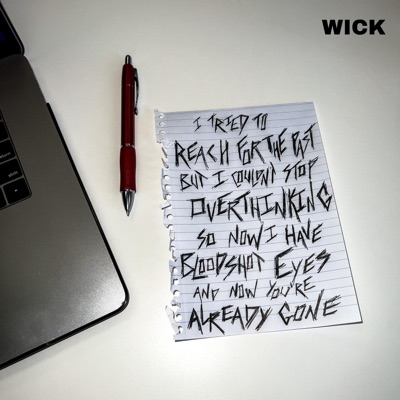 WICK
I TRIED TO
REACH FOR THE PAST
BUT I COULDN'T STOP
OVERTHINKING
SO NOW I HAVE
BLOODSHOT EYES
AND NOW YOU'RE
ALREADY GONE